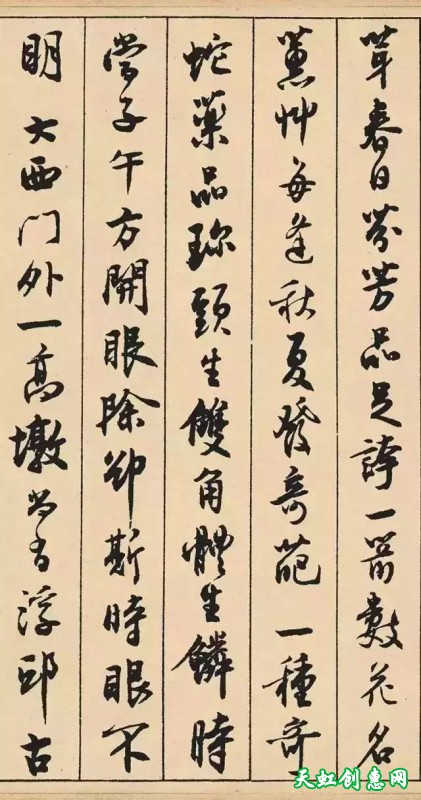 茸春日芬芳品足誇一箭數花名
蕙艸每逢秋夏發奇葩 一種奇
蛇藥品珍頭生雙角體生鱗時
當子午方開眼除卻斯時眼不
明 大西門外一高墩尚有浮邱古
天虹创惠网